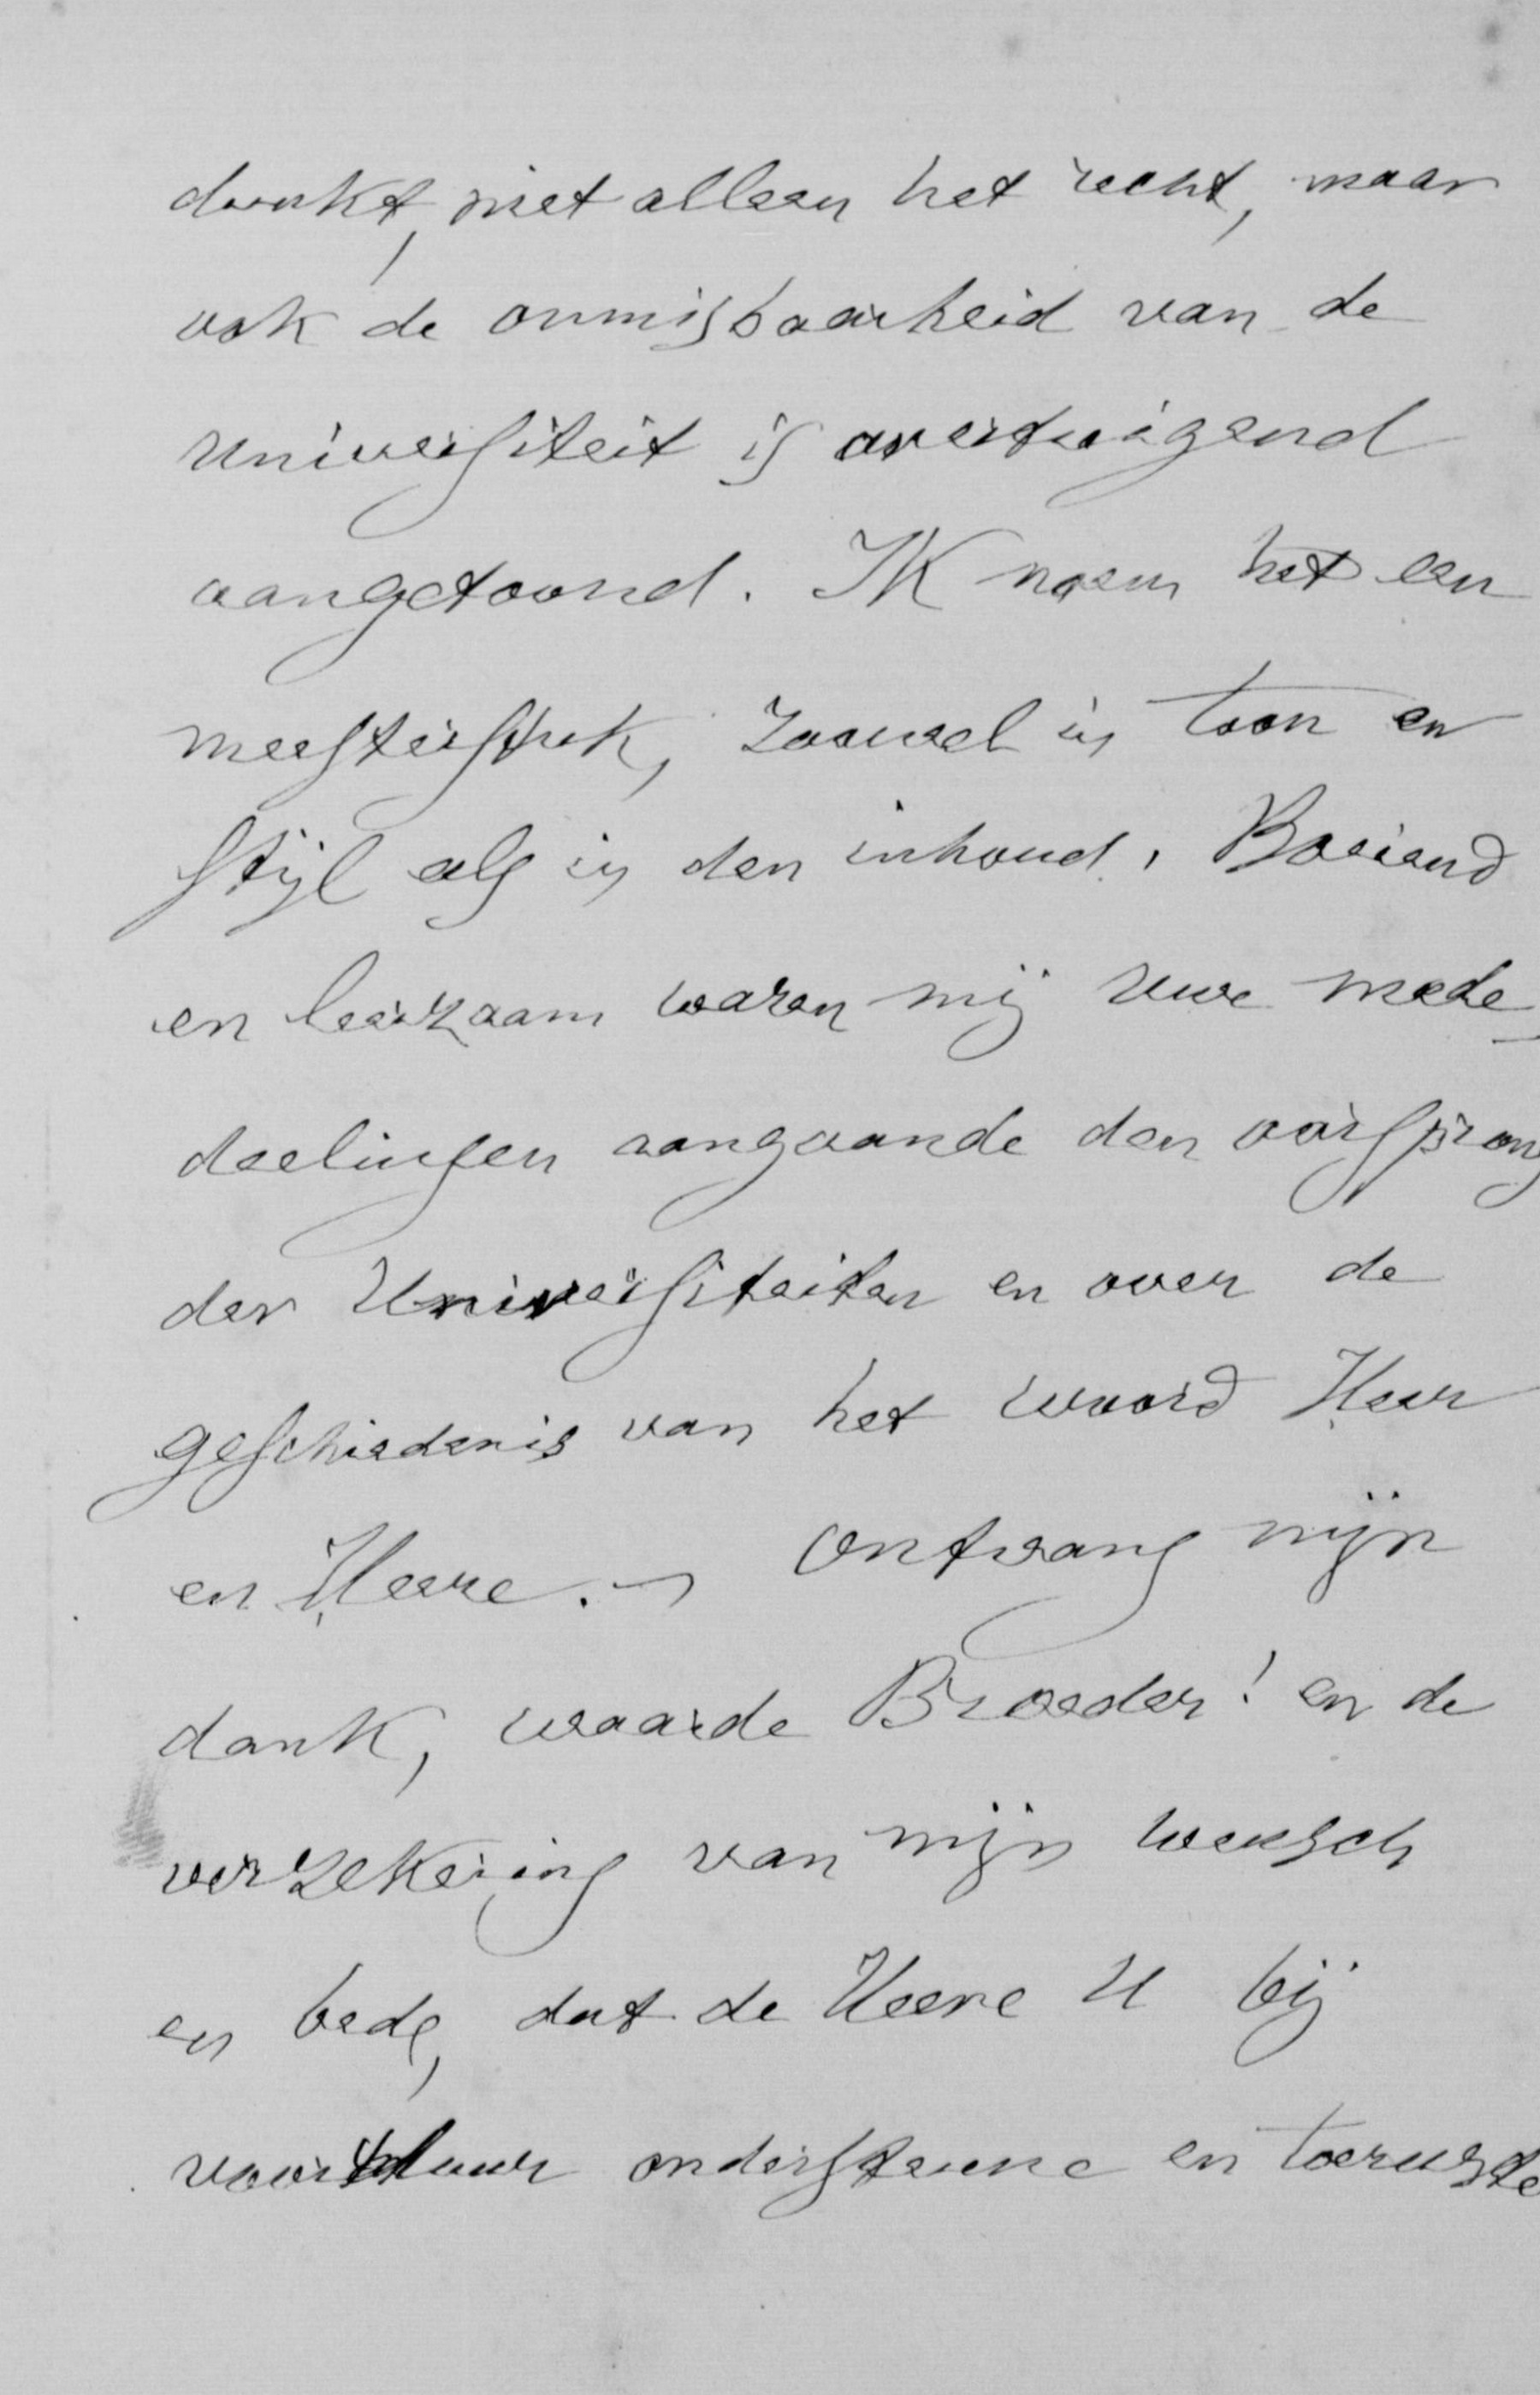 dunkt, niet alleen het recht, maar
ook de onmisbaarheid van de
Universiteit is overtuigend
aangetoond. Ik noem het een
meesterstuk, zoowel in toon en
stijl als in den inhoud. Boeiend
en leerzaam waren mij uwe mede-
deelingen aangaande den oorsprong
der Universiteiten en over de
geschiedenis van het woord Heer
en Heere. – Ontvang mijn
dank, waarde Broeder! en de
verzekering van mijn wensch
en bede, dat de Heere U bij
voortduur ondersteune en toeruste